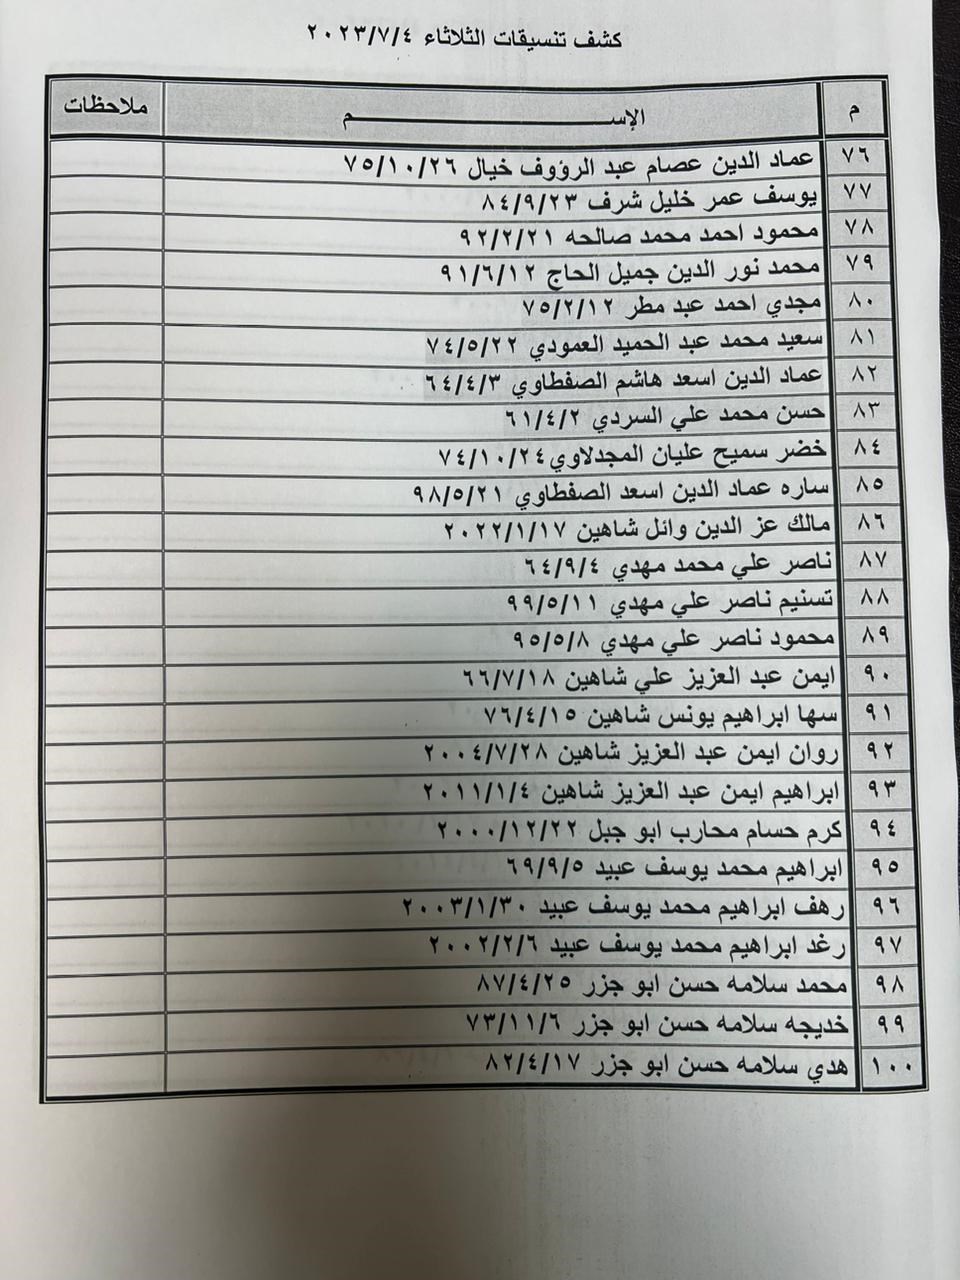 كشف تنسيقات الثلاثاء ٢٠٢٣/٧/٤
م الإســـــــــــــــــــــم ملاحظات
٧٦ عماد الدين عصام عبد الرؤوف خيال ٧٥/١٠/٢٦
٧٧ يوسف عمر خليل شرف ٨٤/٩/٢٣
٧٨ محمود احمد محمد صالحه ٩٢/٢/٢١
٧٩ محمد نور الدين جميل الحاج ٩١/٦/١٢
٨٠ مجدي احمد عبد مطر ٧٥/٢/١٢
٨١ سعيد محمد عبد الحميد العمودي ٧٤/٥/٢٢
٨٢ عماد الدين اسعد هاشم الصفطاوي ٦٤/٤/٣
٨٣ حسن محمد علي السردي ٦١/٤/٢
٨٤ خضر سميح عليان المجدلاوي٧٤/١٠/٢٤
٨٥ ساره عماد الدين اسعد الصفطاوي ٩٨/٥/٢١
٨٦ مالك عز الدين وائل شاهين ٢٠٢٢/١/١٧
٨٧ ناصر علي محمد مهدي ٦٤/٩/٤
٨٨ تسنيم ناصر علي مهدي ٩٩/٥/١١
٨٩ محمود ناصر علي مهدي ٩٥/٥/٨
٩٠ ايمن عبد العزيز علي شاهين ٦٦/٧/١٨
٩١ سها ابراهيم يونس شاهين ٧٦/٤/١٥
٩٢ روان ايمن عبد العزيز شاهين ٢٠٠٤/٧/٢٨
٩٣ ابراهيم ايمن عبد العزيز شاهين ٢٠١١/١/٤
٩٤ كرم حسام محارب ابو جبل ٢٠٠٠/١٢/٢٢
٩٥ ابراهيم محمد يوسف عبيد ٦٩/٩/٥
٩٦ رهف ابراهيم محمد يوسف عبيد ٢٠٠٣/١/٣٠
٩٧ رغد ابراهيم محمد يوسف عبيد ٢٠٠٢/٢/٦
٩٨ محمد سلامه حسن ابو جزر ٨٧/٤/٢٥
٩٩ خديجه سلامه حسن ابو جزر ٧٣/١١/٦
١٠٠ هدي سلامه حسن ابو جزر ٨٢/٤/١٧